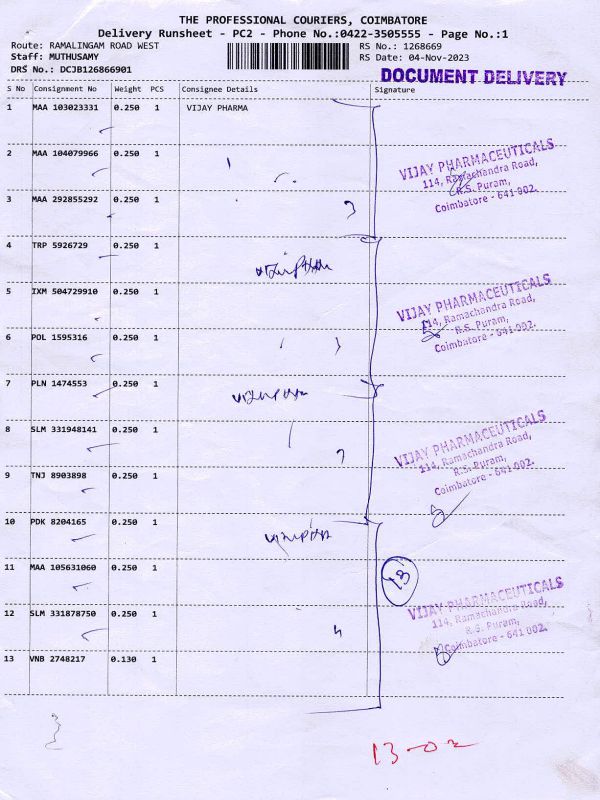 THE PROFESSIONAL COURIERS, COIMBATORE
Delivery Runsheet - PC2 - Phone No.:0422-3505555 - Page No.:1
Route: RAMALINGAM ROAD WEST RS No.: 1268669
Staff: MUTHUSAMY RS Date: 04-Nov-2023
DRS No.: DCJB126866901 DOCUMENT DELIVERY
S No Consignment No Weight PCS Consignee Details Signature
1 MAA 103023331 0.250 1 VIJAY PHARMA
VIJAY PHARMACEUTICALS
2 MAA 104079966 0.250 1
114, Ramachandra Road,
R.S. Puram,
Coimbatore - 641 002.
3 MAA 292855292 0.250 1
4 TRP 5926729 0.250 1
VIJAY PHARMACEUTICALS
5 IXM 504729910 0.250 1
114, Ramachandra Road,
R.S. Puram,
Coimbatore - 641 002.
6 POL 1595316 0.250 1
7 PLN 1474553 0.250 1
VIJAY PHARMACEUTICALS
8 SLM 331948141 0.250 1
114, Ramachandra Road,
R.S. Puram,
Coimbatore - 641 002.
9 TNJ 8903898 0.250 1
10 PDK 8204165 0.250 1
11 MAA 105631060 0.250 1
13
VIJAY PHARMACEUTICALS
114, Ramachandra Road,
12 SLM 331878750 0.250 1
R.S. Puram,
Coimbatore - 641 002.
13 VNB 2748217 0.130 1
13-02